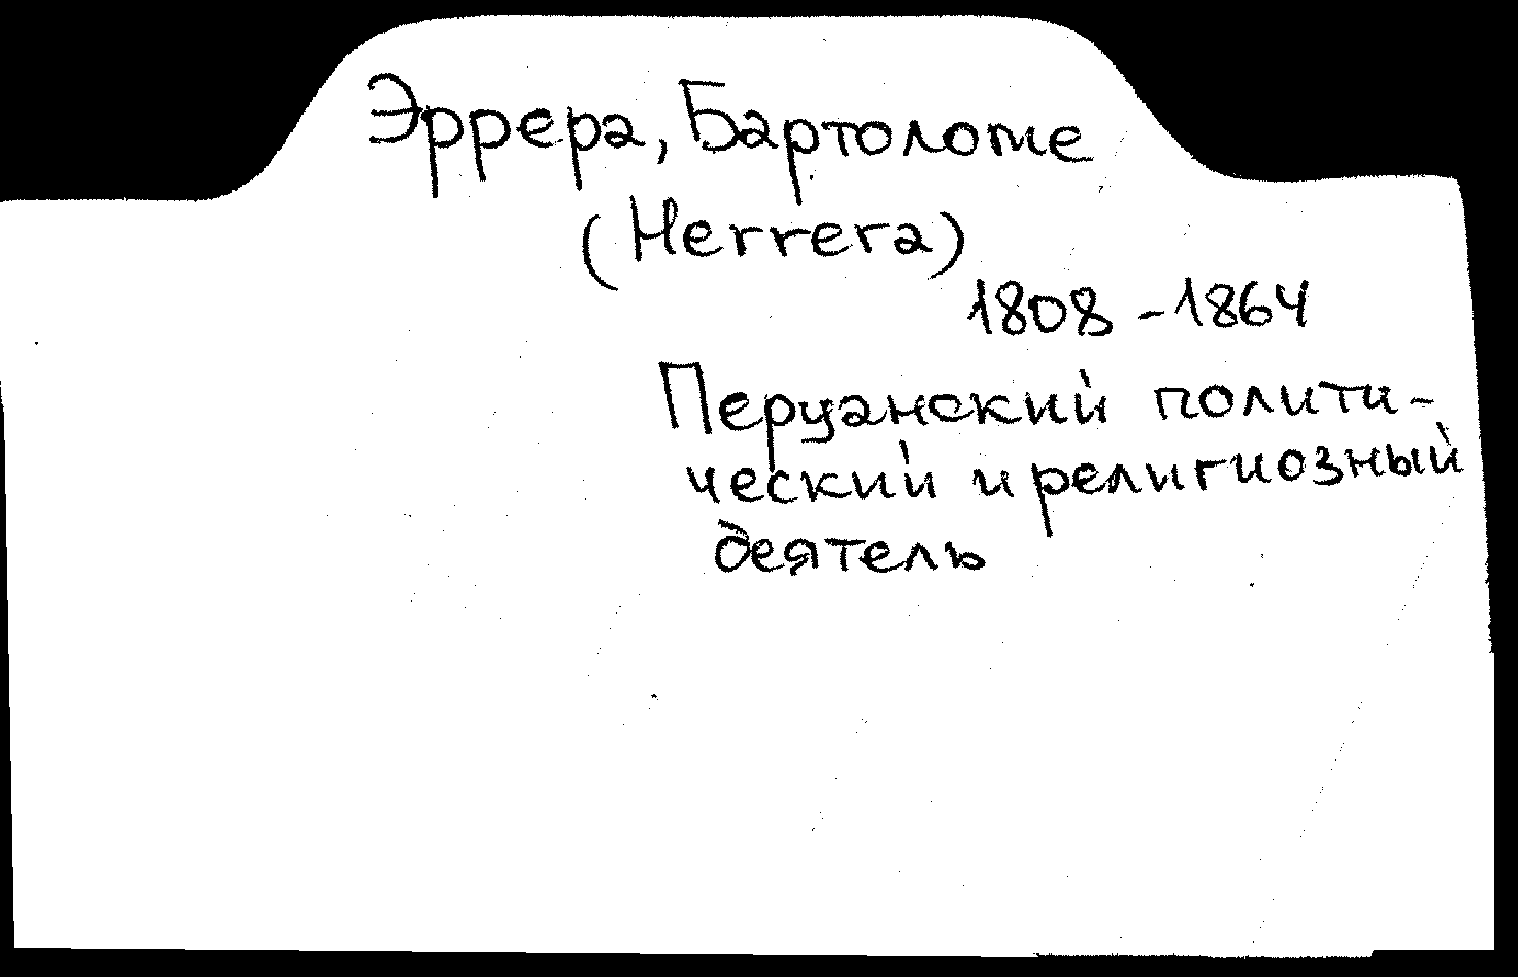 Эррера, Бартоломе
(Herrera)
1808 - 1864
Перуанский полити-
ческий и религиозный
деятель